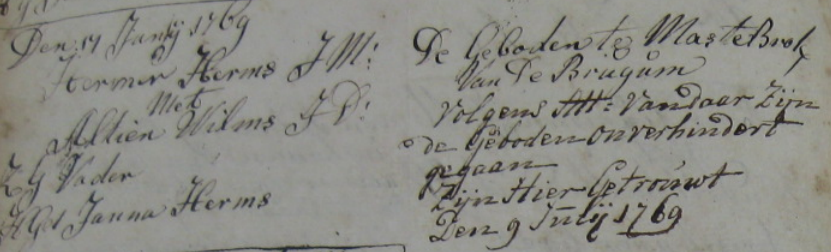 Den 17 Junÿ 1769
Hermen Herms J M:
Met
Altien Wilms J D:
Z G Vader
H Get Janna Herms
De Geboden te MasteBrok
Van De Brugum
Volgens Att: Vandaar Zijn
de Geboden onverhindert
gegaan
Zijn Hier Getrouwt
Den 9 Julÿ 1769